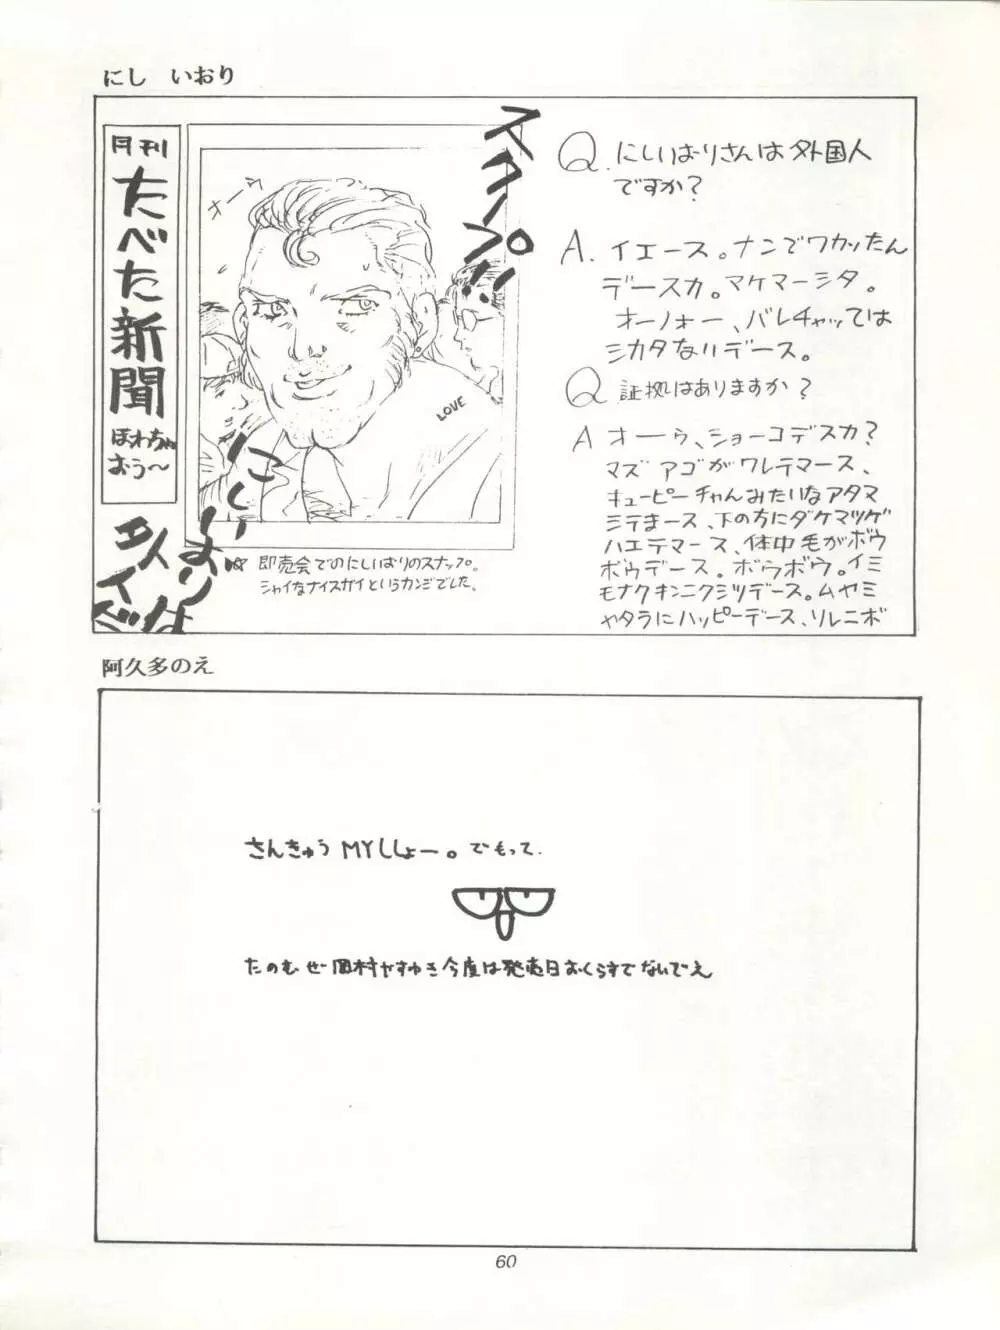 にし　いおり
月刊
たべた新聞
ほわちゃん
おう〜
スクープ!!
にしいよりは
LOVE
☆ 即売会でのにしいよりのスナップ。
シャイなナイスガイというカンジでした。
Q. にしいおりさんは外国人
ですか?
A. イエース。ナンでワカッたん
デースカ。マケマーシタ。
オーノォー、バレチャッては
シカタなハデース。
Q 証拠はありますか?
A オーゥ、ショーコデスカ?
マズアゴがワレテマース、
キューピーチャんみたいなアタマ
ミテまース、下の方にダケマツゲ
ハエテマース、体中毛がボウ
ボウデース。ボウボウ。イミ
モナクキンニクシツデース。ムヤミ
ヤタラにハッピーデース、ソレニボ
阿久多のえ
さんきゅうMYししょー。でもって.
たのむぜ岡村やすゆき今度は発売日おくらすでないでえ
60